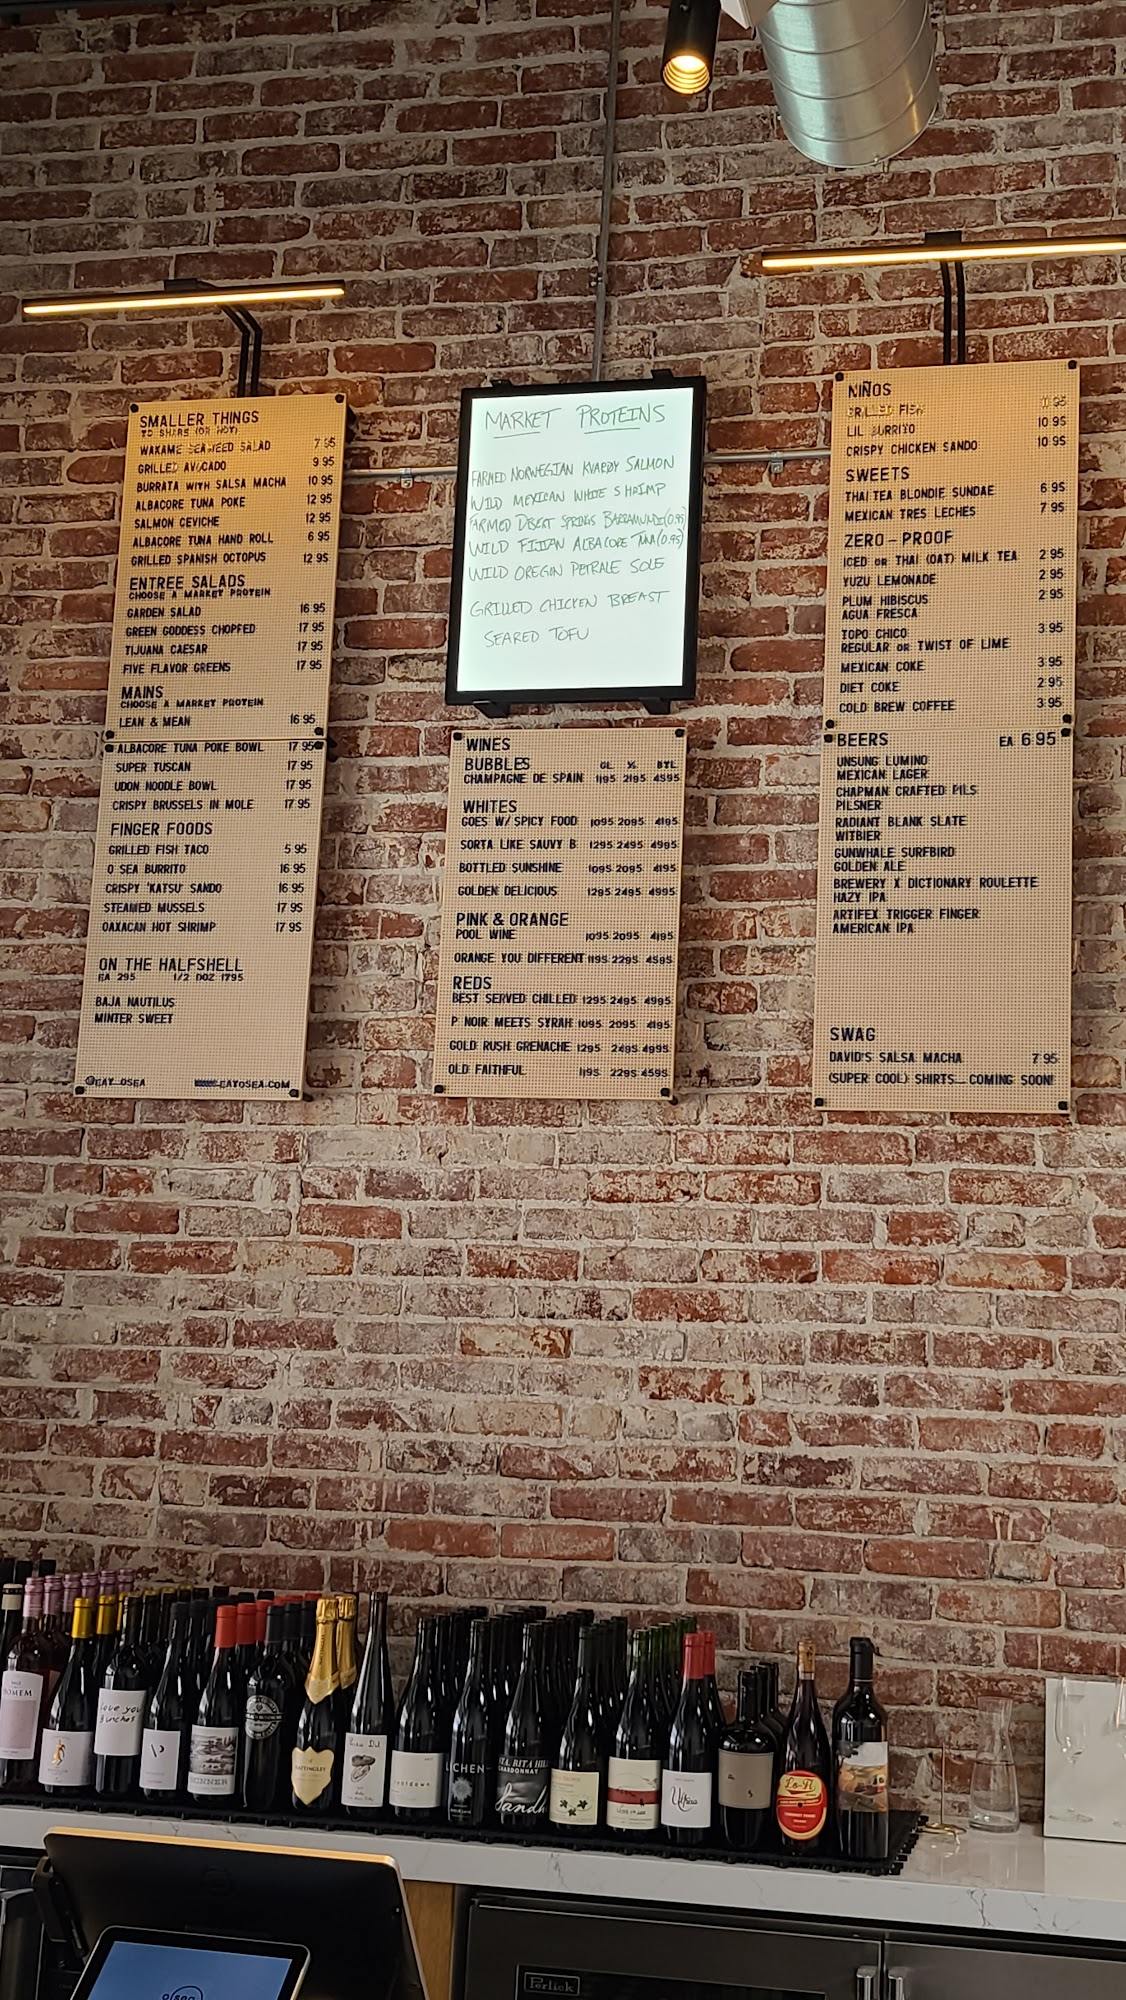 SMALLER THINGS
TO SHARE (OR NOT)
WAKAME SEAWEED SALAD 7 95
GRILLED AVOCADO 9 95
BURRATA WITH SALSA MACHA 10 95
ALBACORE TUNA POKE 12 95
SALMON CEVICHE 12 95
ALBACORE TUNA HAND ROLL 6 95
GRILLED SPANISH OCTOPUS 12 95
ENTREE SALADS
CHOOSE A MARKET PROTEIN
GARDEN SALAD 16 95
GREEN GODDESS CHOPPED 17 95
TIJUANA CAESAR 17 95
FIVE FLAVOR GREENS 17 95
MAINS
CHOOSE A MARKET PROTEIN
LEAN & MEAN 16 95
ALBACORE TUNA POKE BOWL 17 95
SUPER TUSCAN 17 95
UDON NOODLE BOWL 17 95
CRISPY BRUSSELS IN MOLE 17 95
FINGER FOODS
GRILLED FISH TACO 5 95
O SEA BURRITO 16 95
CRISPY 'KATSU' SANDO 16 95
STEAMED MUSSELS 17 95
OAXACAN HOT SHRIMP 17 95
ON THE HALFSHELL
EA 295 1/2 DOZ 1795
BAJA NAUTILUS
MINTER SWEET
@EAT_OSEA WWW.EATOSEA.COM
MARKET PROTEINS
FARMED NORWEGIAN KVARØY SALMON
WILD MEXICAN WHITE SHRIMP
FARMED DESERT SPRINGS BARRAMUNDI (0.95)
WILD FIJIAN ALBACORE TUNA (0.95)
WILD OREGIN PETRALE SOLE
GRILLED CHICKEN BREAST
SEARED TOFU
WINES
BUBBLES GL ½ BTL
CHAMPAGNE DE SPAIN 1195 2195 4595
WHITES
GOES W/ SPICY FOOD 1095 2095 4195
SORTA LIKE SAUVY B 1295 2495 4995
BOTTLED SUNSHINE 1095 2095 4195
GOLDEN DELICIOUS 1295 2495 4995
PINK & ORANGE
POOL WINE 1095 2095 4195
ORANGE YOU DIFFERENT 1195 2295 4595
REDS
BEST SERVED CHILLED 1295 2495 4995
P NOIR MEETS SYRAH 1095 2095 4195
GOLD RUSH GRENACHE 1295 2495 4995
OLD FAITHFUL 1195 2295 4595
NIÑOS
GRILLED FISH 11 95
LIL BURRITO 10 95
CRISPY CHICKEN SANDO 10 95
SWEETS
THAI TEA BLONDIE SUNDAE 6 95
MEXICAN TRES LECHES 7 95
ZERO-PROOF
ICED OR THAI (OAT) MILK TEA 2 95
YUZU LEMONADE 2 95
PLUM HIBISCUS 2 95
AGUA FRESCA
TOPO CHICO 3 95
REGULAR OR TWIST OF LIME
MEXICAN COKE 3 95
DIET COKE 2 95
COLD BREW COFFEE 3 95
BEERS EA 6 95
UNSUNG LUMINO
MEXICAN LAGER
CHAPMAN CRAFTED PILS
PILSNER
RADIANT BLANK SLATE
WITBIER
GUNWHALE SURFBIRD
GOLDEN ALE
BREWERY X DICTIONARY ROULETTE
HAZY IPA
ARTIFEX TRIGGER FINGER
AMERICAN IPA
SWAG
DAVID'S SALSA MACHA 7 95
(SUPER COOL) SHIRTS... COMING SOON!
Love you
Bunches
LICHEN
STA. RITA HILLS
CHARDONNAY
Sandhi
Lo-Fi
Perlick